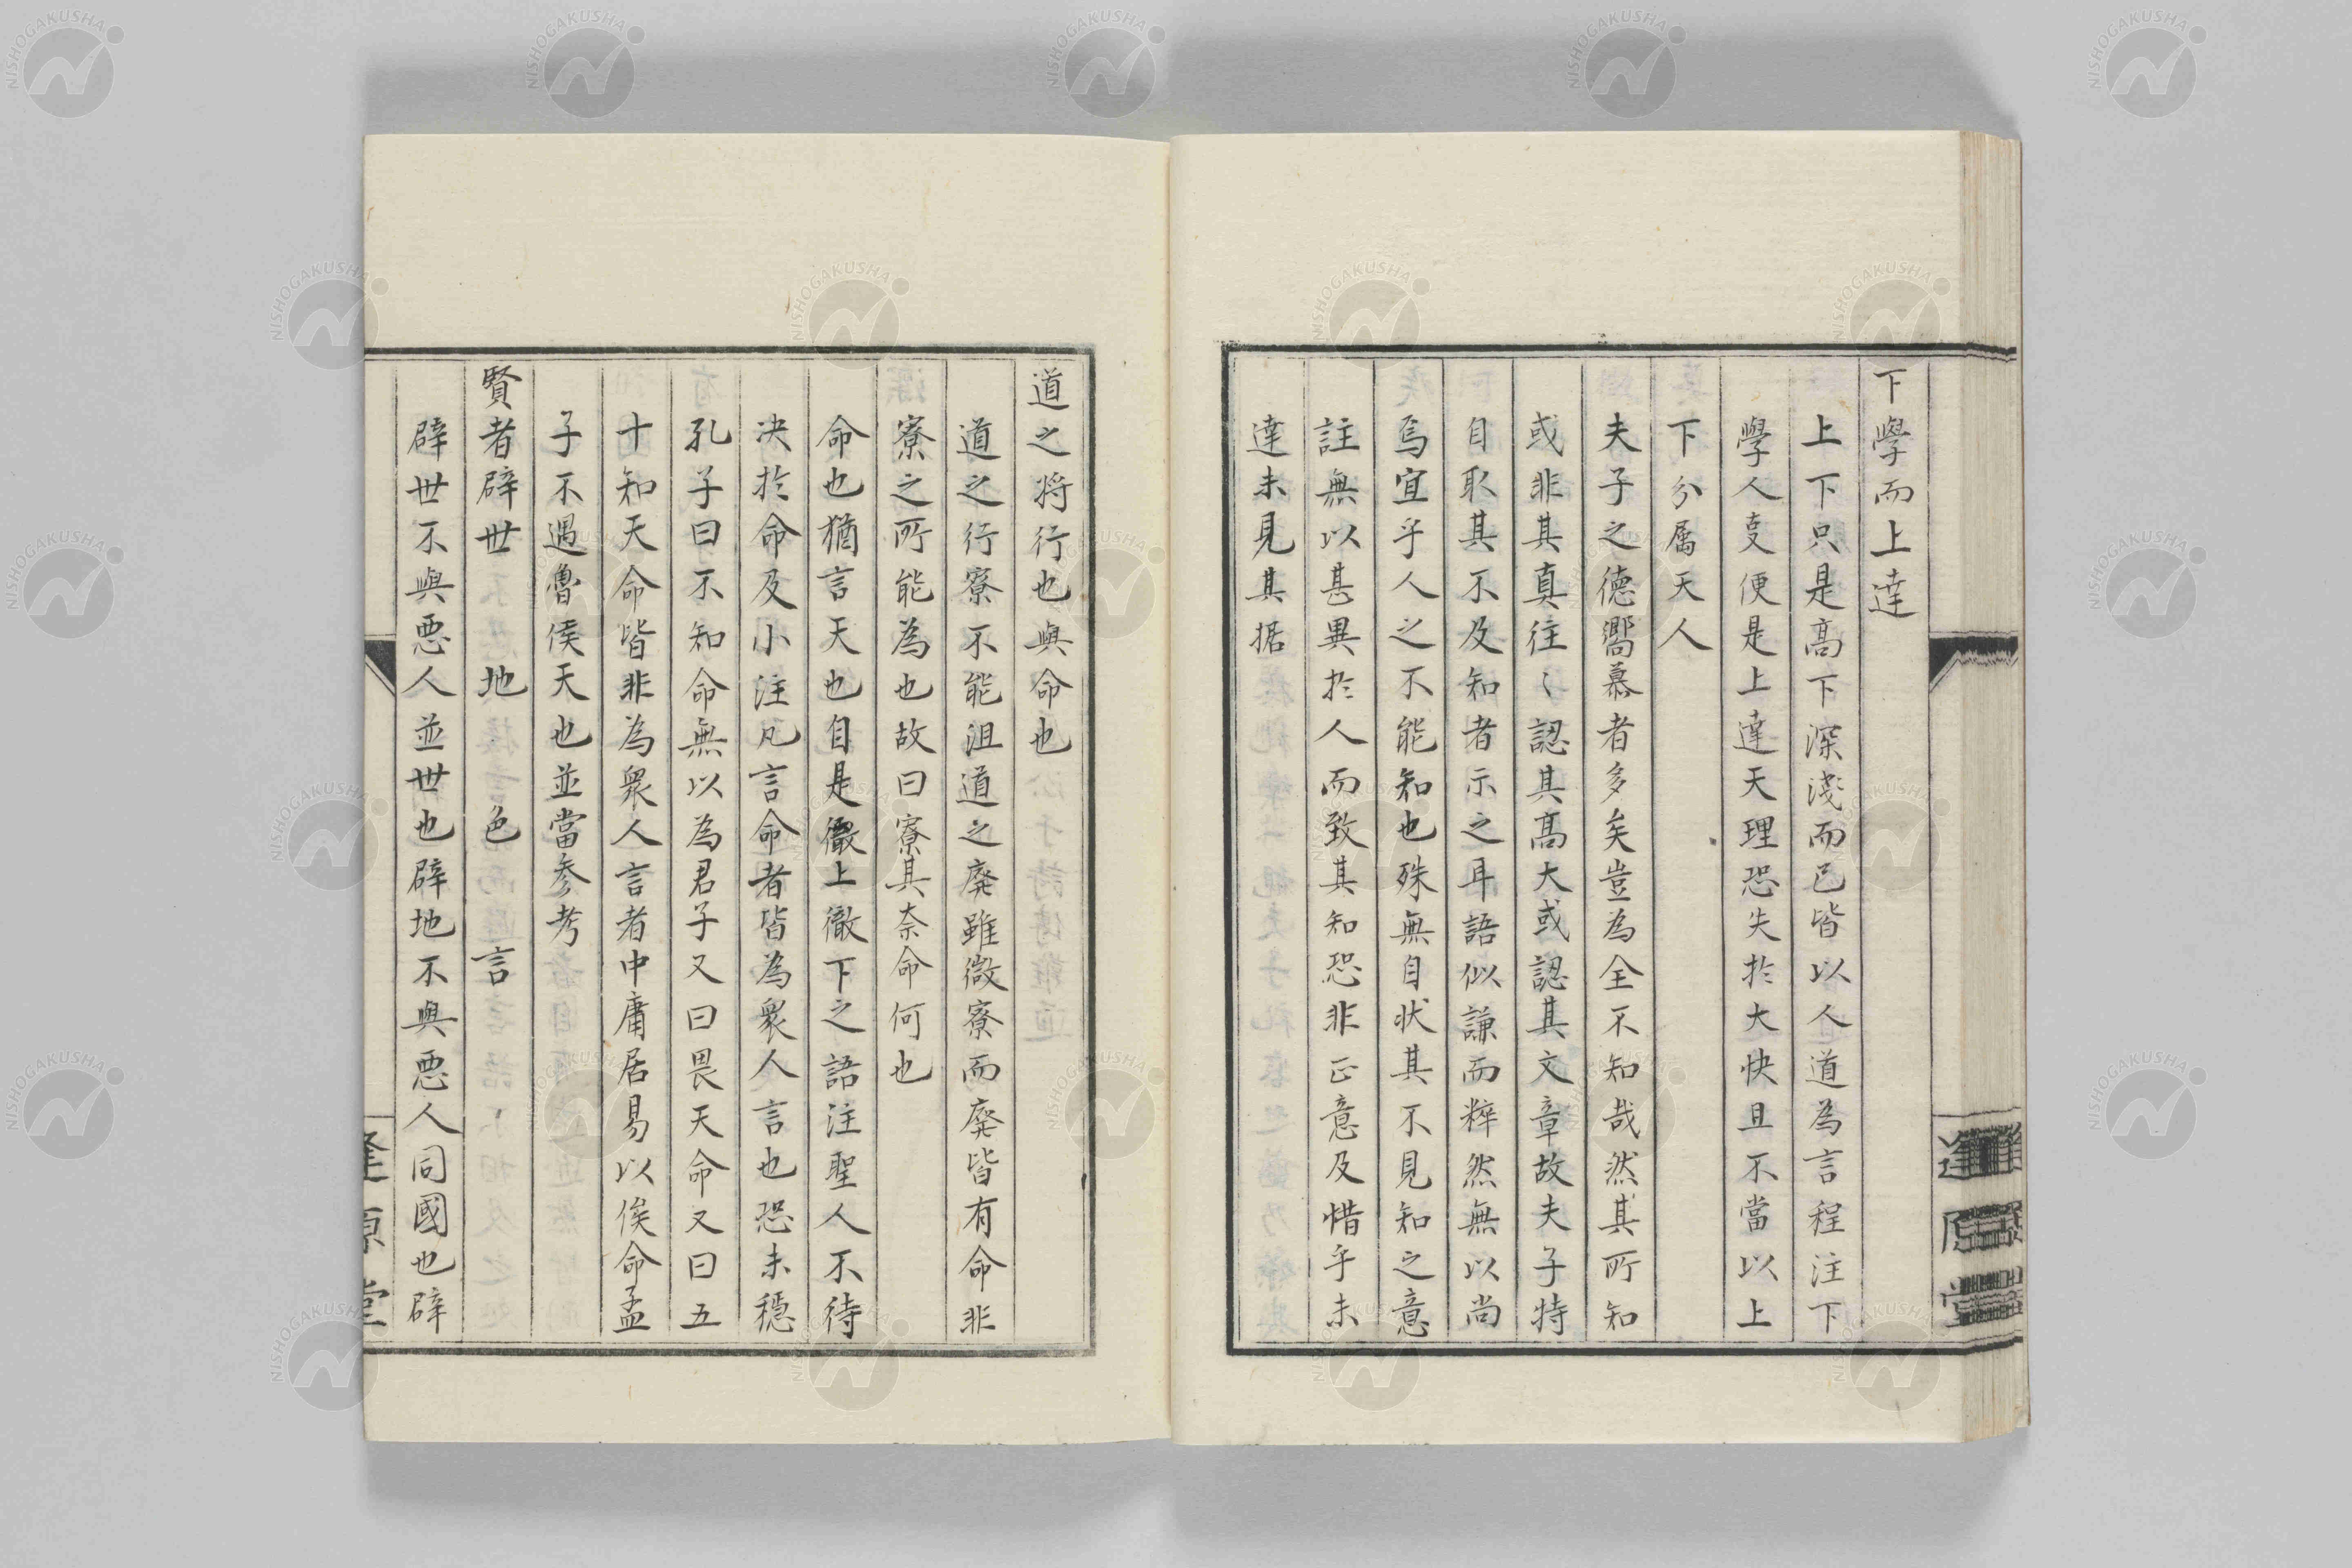 下學而上達
上下只是高下深淺而已皆以人道為言程注下
學人事便是上達天理恐失於大快且不當以上
下分属天人
夫子之德嚮慕者多矣豈為全不知哉然其所知
或非其真往〻認其高大或認其文章故夫子特
自取其不及知者示之耳語似謙而粹然無以尚
焉宜乎人之不能知也殊無自状其不見知之意
註無以甚異於人而致其知恐非正意及惜乎未
達未見其据
道之将行也與命也
道之行寮不能沮道之廃雖微寮而廃皆有命非
寮之所能為也故曰寮其奈命何也
命也猶言天也自是徹上徹下之語注聖人不待
决於命及小注凡言命者皆為衆人言也恐未穏
孔子曰不知命無以為君子又曰畏天命又曰五
十知天命皆非為衆人言者中庸居易以俟命孟
子不遇魯侯天也並當参考
賢者辟世 地 色 言
辟世不與悪人並世也辟地不與悪人同國也辟
逢原堂